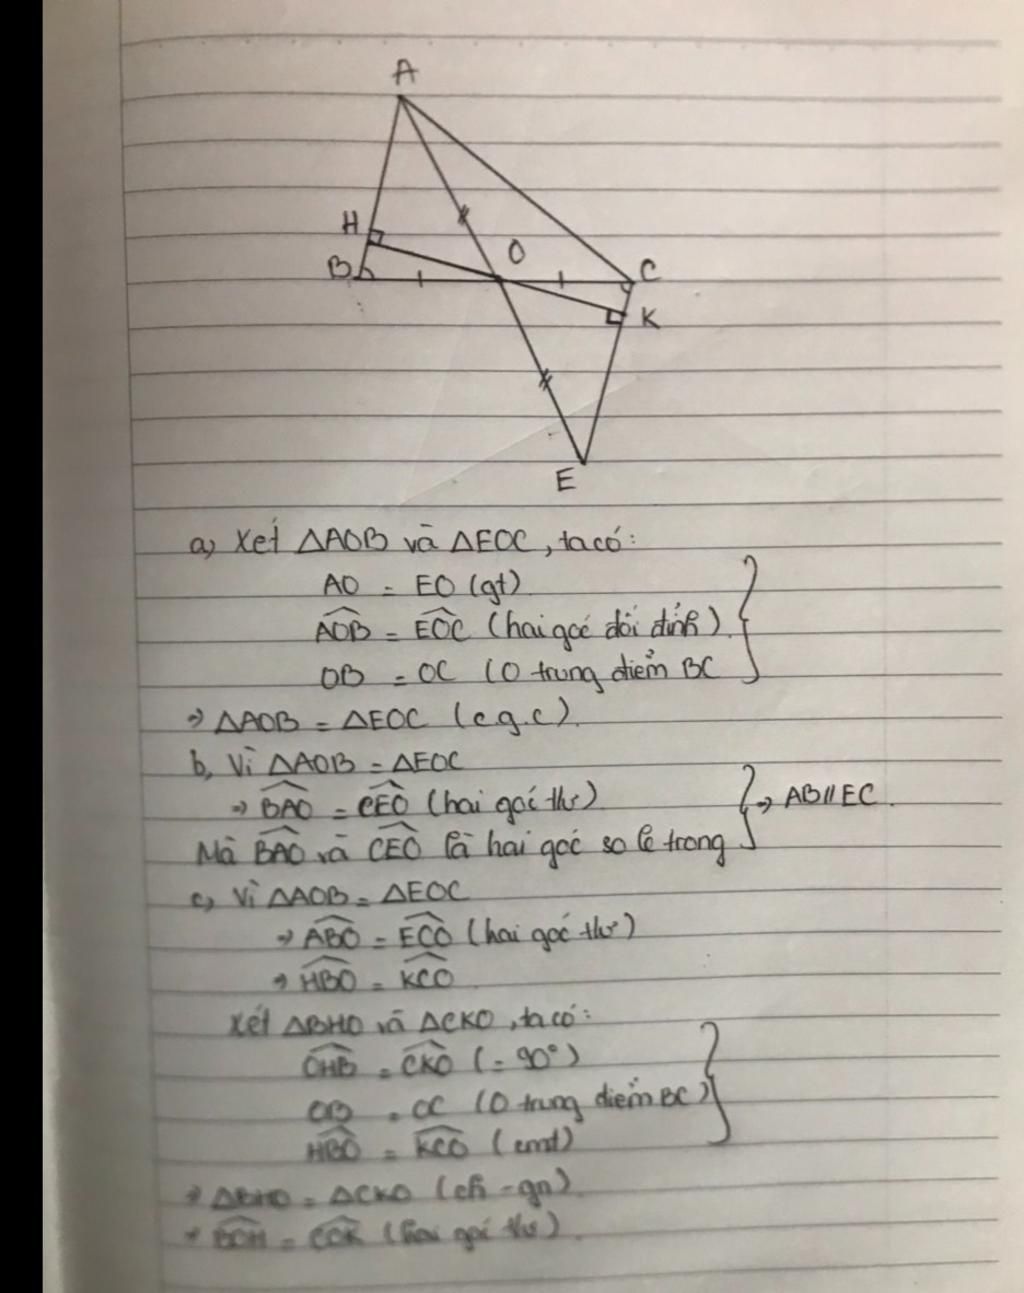 A
H
O
B
C
K
E
a, Xét ΔAOB và ΔEOC, ta có:
AO = EO (gt)
\widehat{AOB} = \widehat{EOC} (hai góc đối đỉnh)
OB = OC (O trung điểm BC
→ ΔAOB = ΔEOC (c.g.c).
b, Vì ΔAOB = ΔEOC
→ \widehat{BAO} = \widehat{CEO} (hai góc tư) → AB // EC.
Mà \widehat{BAO} và \widehat{CEO} là hai góc so le trong
c, Vì ΔAOB = ΔEOC
→ \widehat{ABO} = \widehat{ECO} (hai góc tư)
→ \widehat{HBO} = \widehat{KCO}
Xét ΔBHO và ΔCKO, ta có:
\widehat{OHB} = \widehat{CKO} (= 90°)
OB = OC (O trung điểm BC)
\widehat{HBO} = \widehat{KCO} (cmt)
→ ΔBHO = ΔCKO (ch - gn).
→ \widehat{BOH} = \widehat{COK} (hai góc tư).